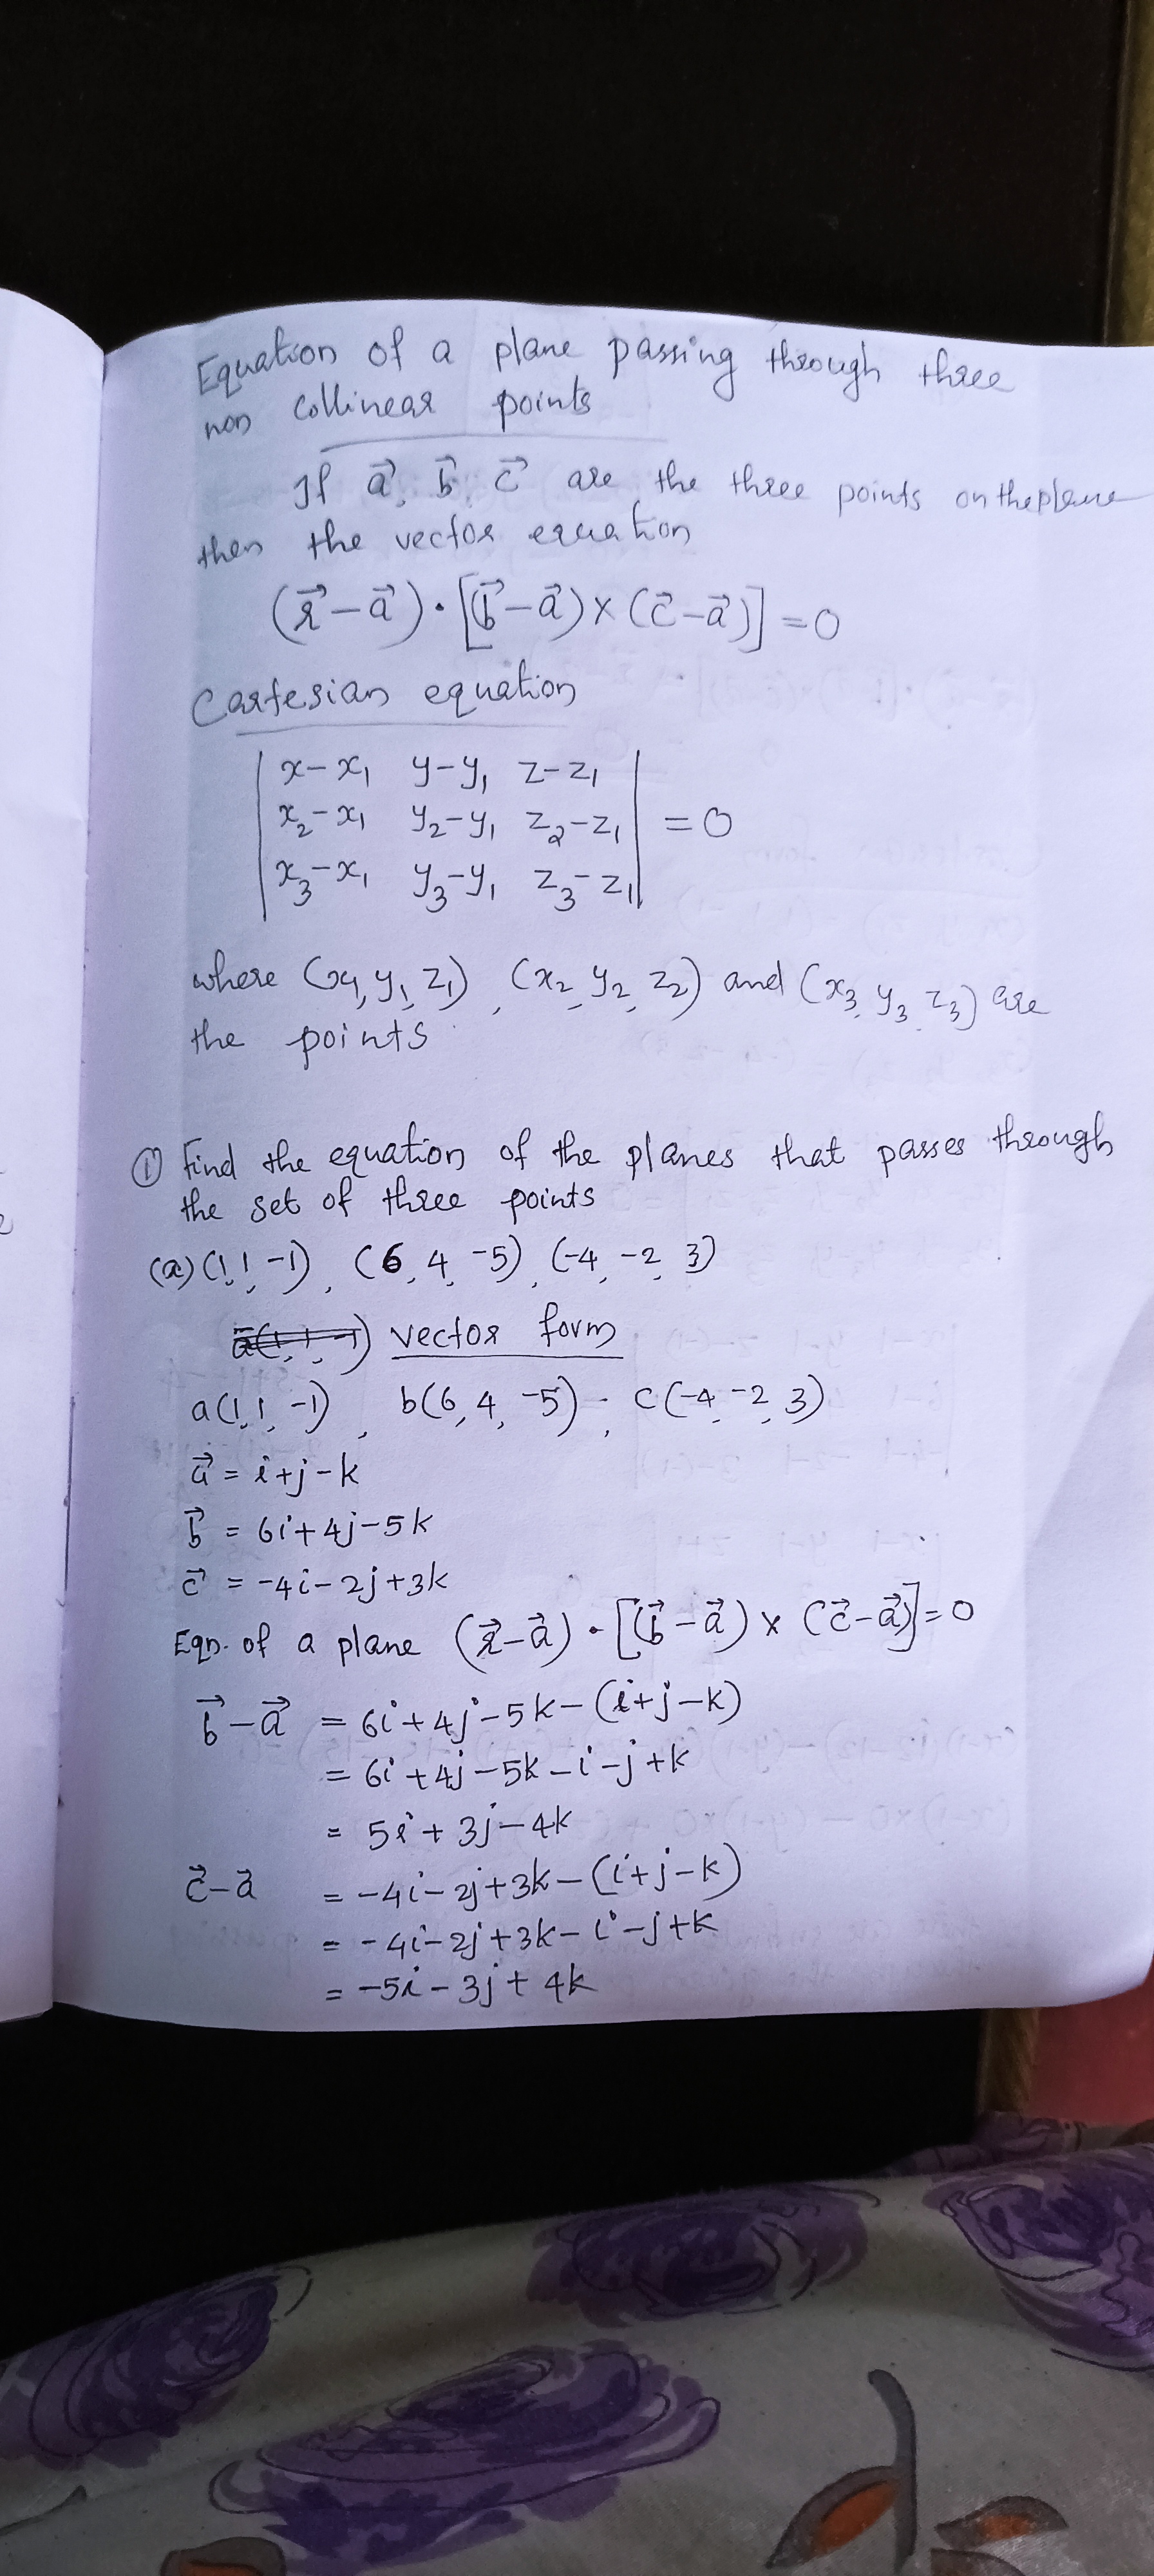 Equation of a plane passing through three
non collinear points
If a⃗, b⃗, c⃗ are the three points on the plane
then the vector equation
(r⃗-a⃗)·[(b⃗-a⃗)×(c⃗-a⃗)]=0
Cartesian equation
| x-x₁ y-y₁ z-z₁ |
| x₂-x₁ y₂-y₁ z₂-z₁ | =0
| x₃-x₁ y₃-y₁ z₃-z₁ |
where (x₁, y₁, z₁), (x₂, y₂, z₂) and (x₃, y₃, z₃) are
the points
① Find the equation of the planes that passes through
the set of three points
(a) (1, 1, -1), (6, 4, -5), (-4, -2, 3)
vector form
a(1, 1, -1), b(6, 4, -5), c(-4, -2, 3)
a⃗ = i+j-k
b⃗ = 6i+4j-5k
c⃗ = -4i-2j+3k
Eqn. of a plane (r⃗-a⃗)·[(b⃗-a⃗)×(c⃗-a⃗)]=0
b⃗-a⃗ = 6i+4j-5k-(i+j-k)
= 6i+4j-5k-i-j+k
= 5i+3j-4k
c⃗-a⃗ = -4i-2j+3k-(i+j-k)
= -4i-2j+3k-i-j+k
= -5i-3j+4k